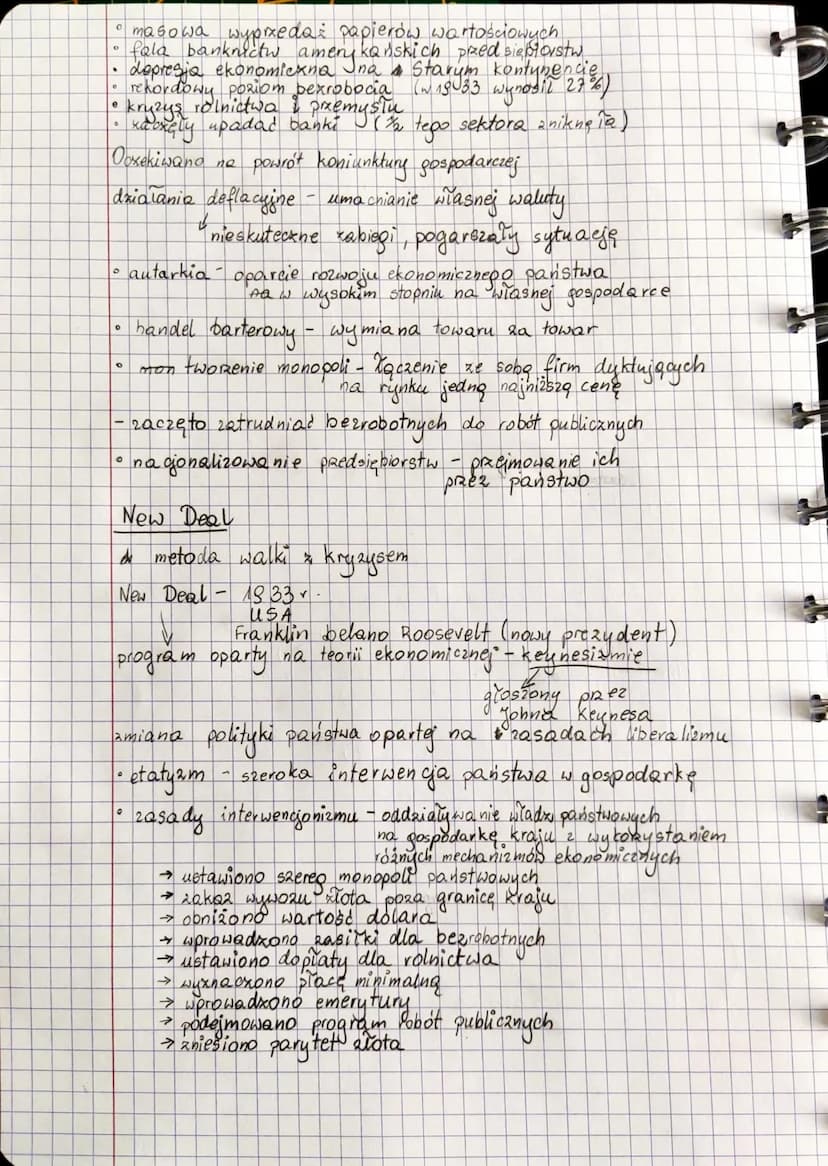 • masowa wyprzedaż papierów wartościowych
• fala bankructw amerykańskich przedsiębiorstw
• depresja ekonomiczna na Starym kontynencie
• rekordowy poziom bezrobocia (w 1933 wynosił 27%)
• kryzys rolnictwa i przemysłu
• zaczęły upadać banki (½ tego sektora zniknęła)
Oczekiwano na powrót koniunktury gospodarczej
działania deflacyjne - umacnianie własnej waluty
nieskuteczne zabiegi, pogarszały sytuację
• autarkia - oparcie rozwoju ekonomicznego państwa
w wysokim stopniu na własnej gospodarce
• handel barterowy - wymiana towaru za towar
• tworzenie monopoli - łączenie ze sobą firm dyktujących
na rynku jedną najniższą cenę
- zaczęto zatrudniać bezrobotnych do robót publicznych
• nacjonalizowanie przedsiębiorstw - przejmowanie ich
przez państwo
New Deal
metoda walki z kryzysem
New Deal - 1933 r.
USA
Franklin Delano Roosevelt (nowy prezydent)
program oparty na teorii ekonomicznej - keynesizmie
głoszony przez
Johna Keynesa
zmiana polityki państwa opartej na zasadach liberalizmu
• etatyzm - szeroka interwencja państwa w gospodarkę
• zasady interwencjonizmu - oddziaływanie władz państwowych
na gospodarkę kraju z wykorzystaniem
różnych mechanizmów ekonomicznych
→ ustawiono szereg monopoli państwowych
→ zakaz wywozu złota poza granicę kraju
→ obniżono wartość dolara
→ wprowadzono zasiłki dla bezrobotnych
→ ustawiono dopłaty dla rolnictwa
→ wyznaczono płacę minimalną
→ wprowadzono emerytury
→ podejmowano program robót publicznych
→ zniesiono parytet złota